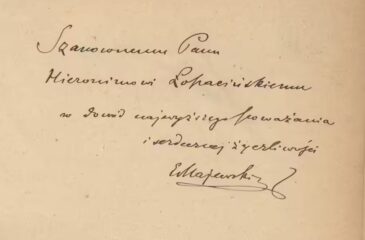 Szanownemu Panu
Hieronimowi Łopacińskiemu
w dowód najwyższego poważania
i serdecznej życzliwości
E Majewski